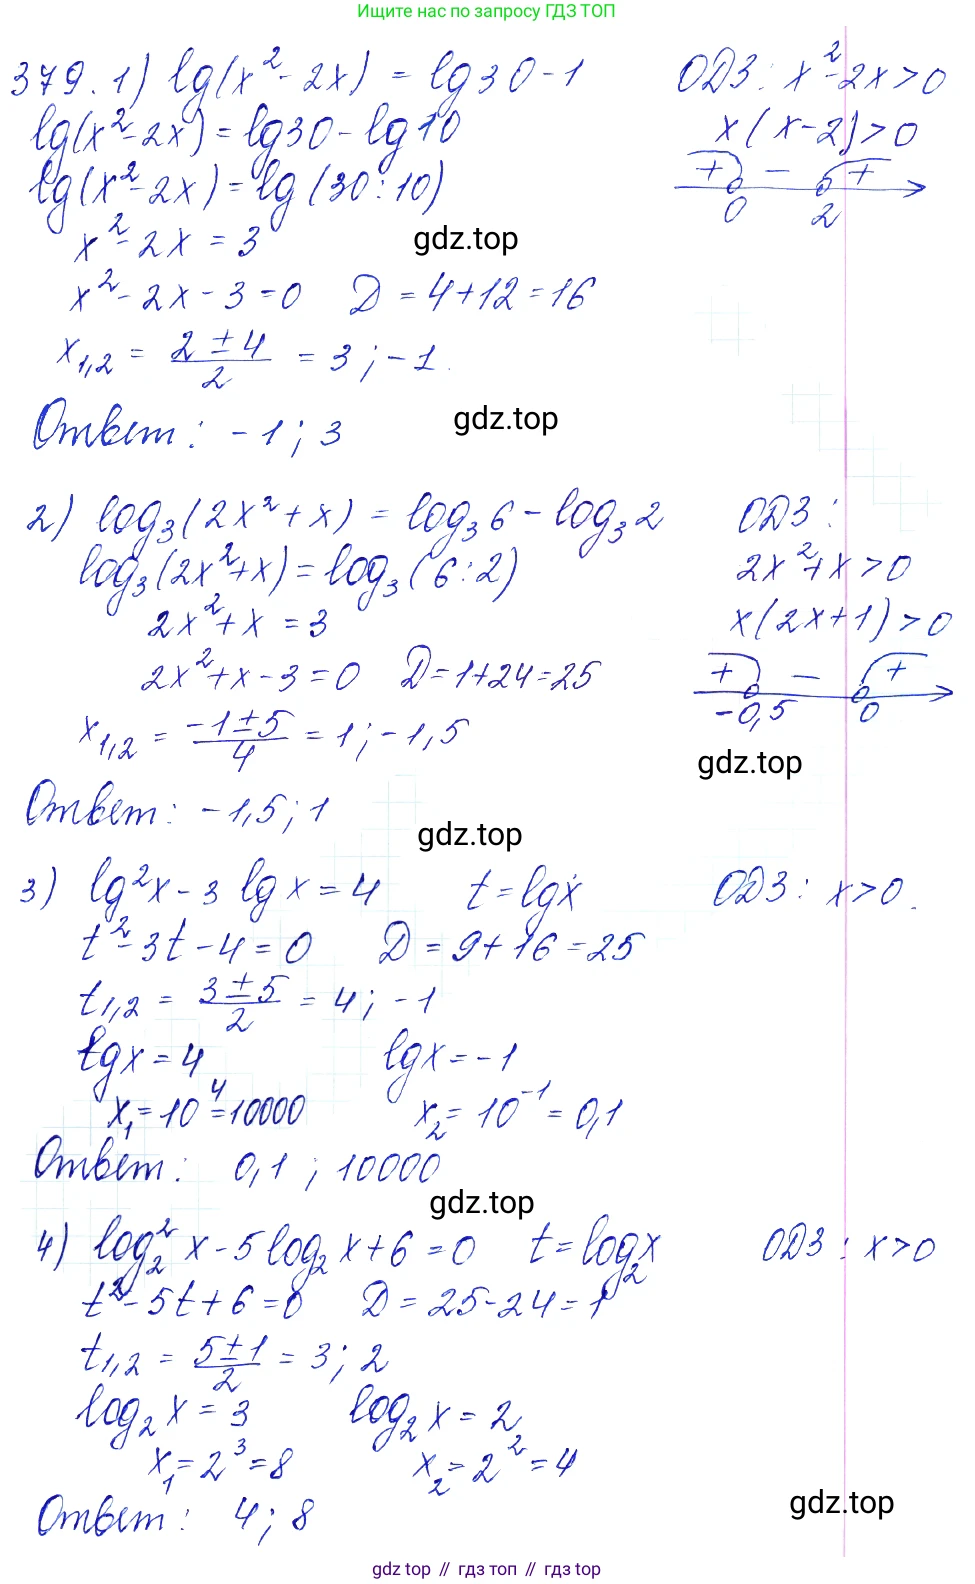 Ищите нас по запросу ГДЗ ТОП
379. 1) lg(x² - 2x) = lg30 - 1    ОДЗ: x² - 2x > 0
lg(x² - 2x) = lg30 - lg10    x(x - 2) > 0
lg(x² - 2x) = lg(30 : 10)    + - +
0 2
x² - 2x = 3    gdz.top
x² - 2x - 3 = 0    D = 4 + 12 = 16
x₁,₂ = (2 ± 4)/2 = 3; -1.
Ответ: -1; 3    gdz.top
2) log₃(2x² + x) = log₃6 - log₃2    ОДЗ:
log₃(2x² + x) = log₃(6 : 2)    2x² + x > 0
2x² + x = 3    x(2x + 1) > 0
2x² + x - 3 = 0    D = 1 + 24 = 25    + - +
-0,5 0
x₁,₂ = (-1 ± 5)/4 = 1; -1,5    gdz.top
Ответ: -1,5; 1    gdz.top
3) lg²x - 3 lgx = 4    t = lgx    ОДЗ: x > 0.
t² - 3t - 4 = 0    D = 9 + 16 = 25
t₁,₂ = (3 ± 5)/2 = 4; -1
lgx = 4    lgx = -1
x₁ = 10⁴ = 10000    x₂ = 10⁻¹ = 0,1
Ответ: 0,1; 10000    gdz.top
4) log₂²x - 5log₂x + 6 = 0    t = log₂x    ОДЗ: x > 0
t² - 5t + 6 = 0    D = 25 - 24 = 1
t₁,₂ = (5 ± 1)/2 = 3; 2
log₂x = 3    log₂x = 2
x₁ = 2³ = 8    x₂ = 2² = 4
Ответ: 4; 8    gdz.top
gdz top // гдз топ // gdz top